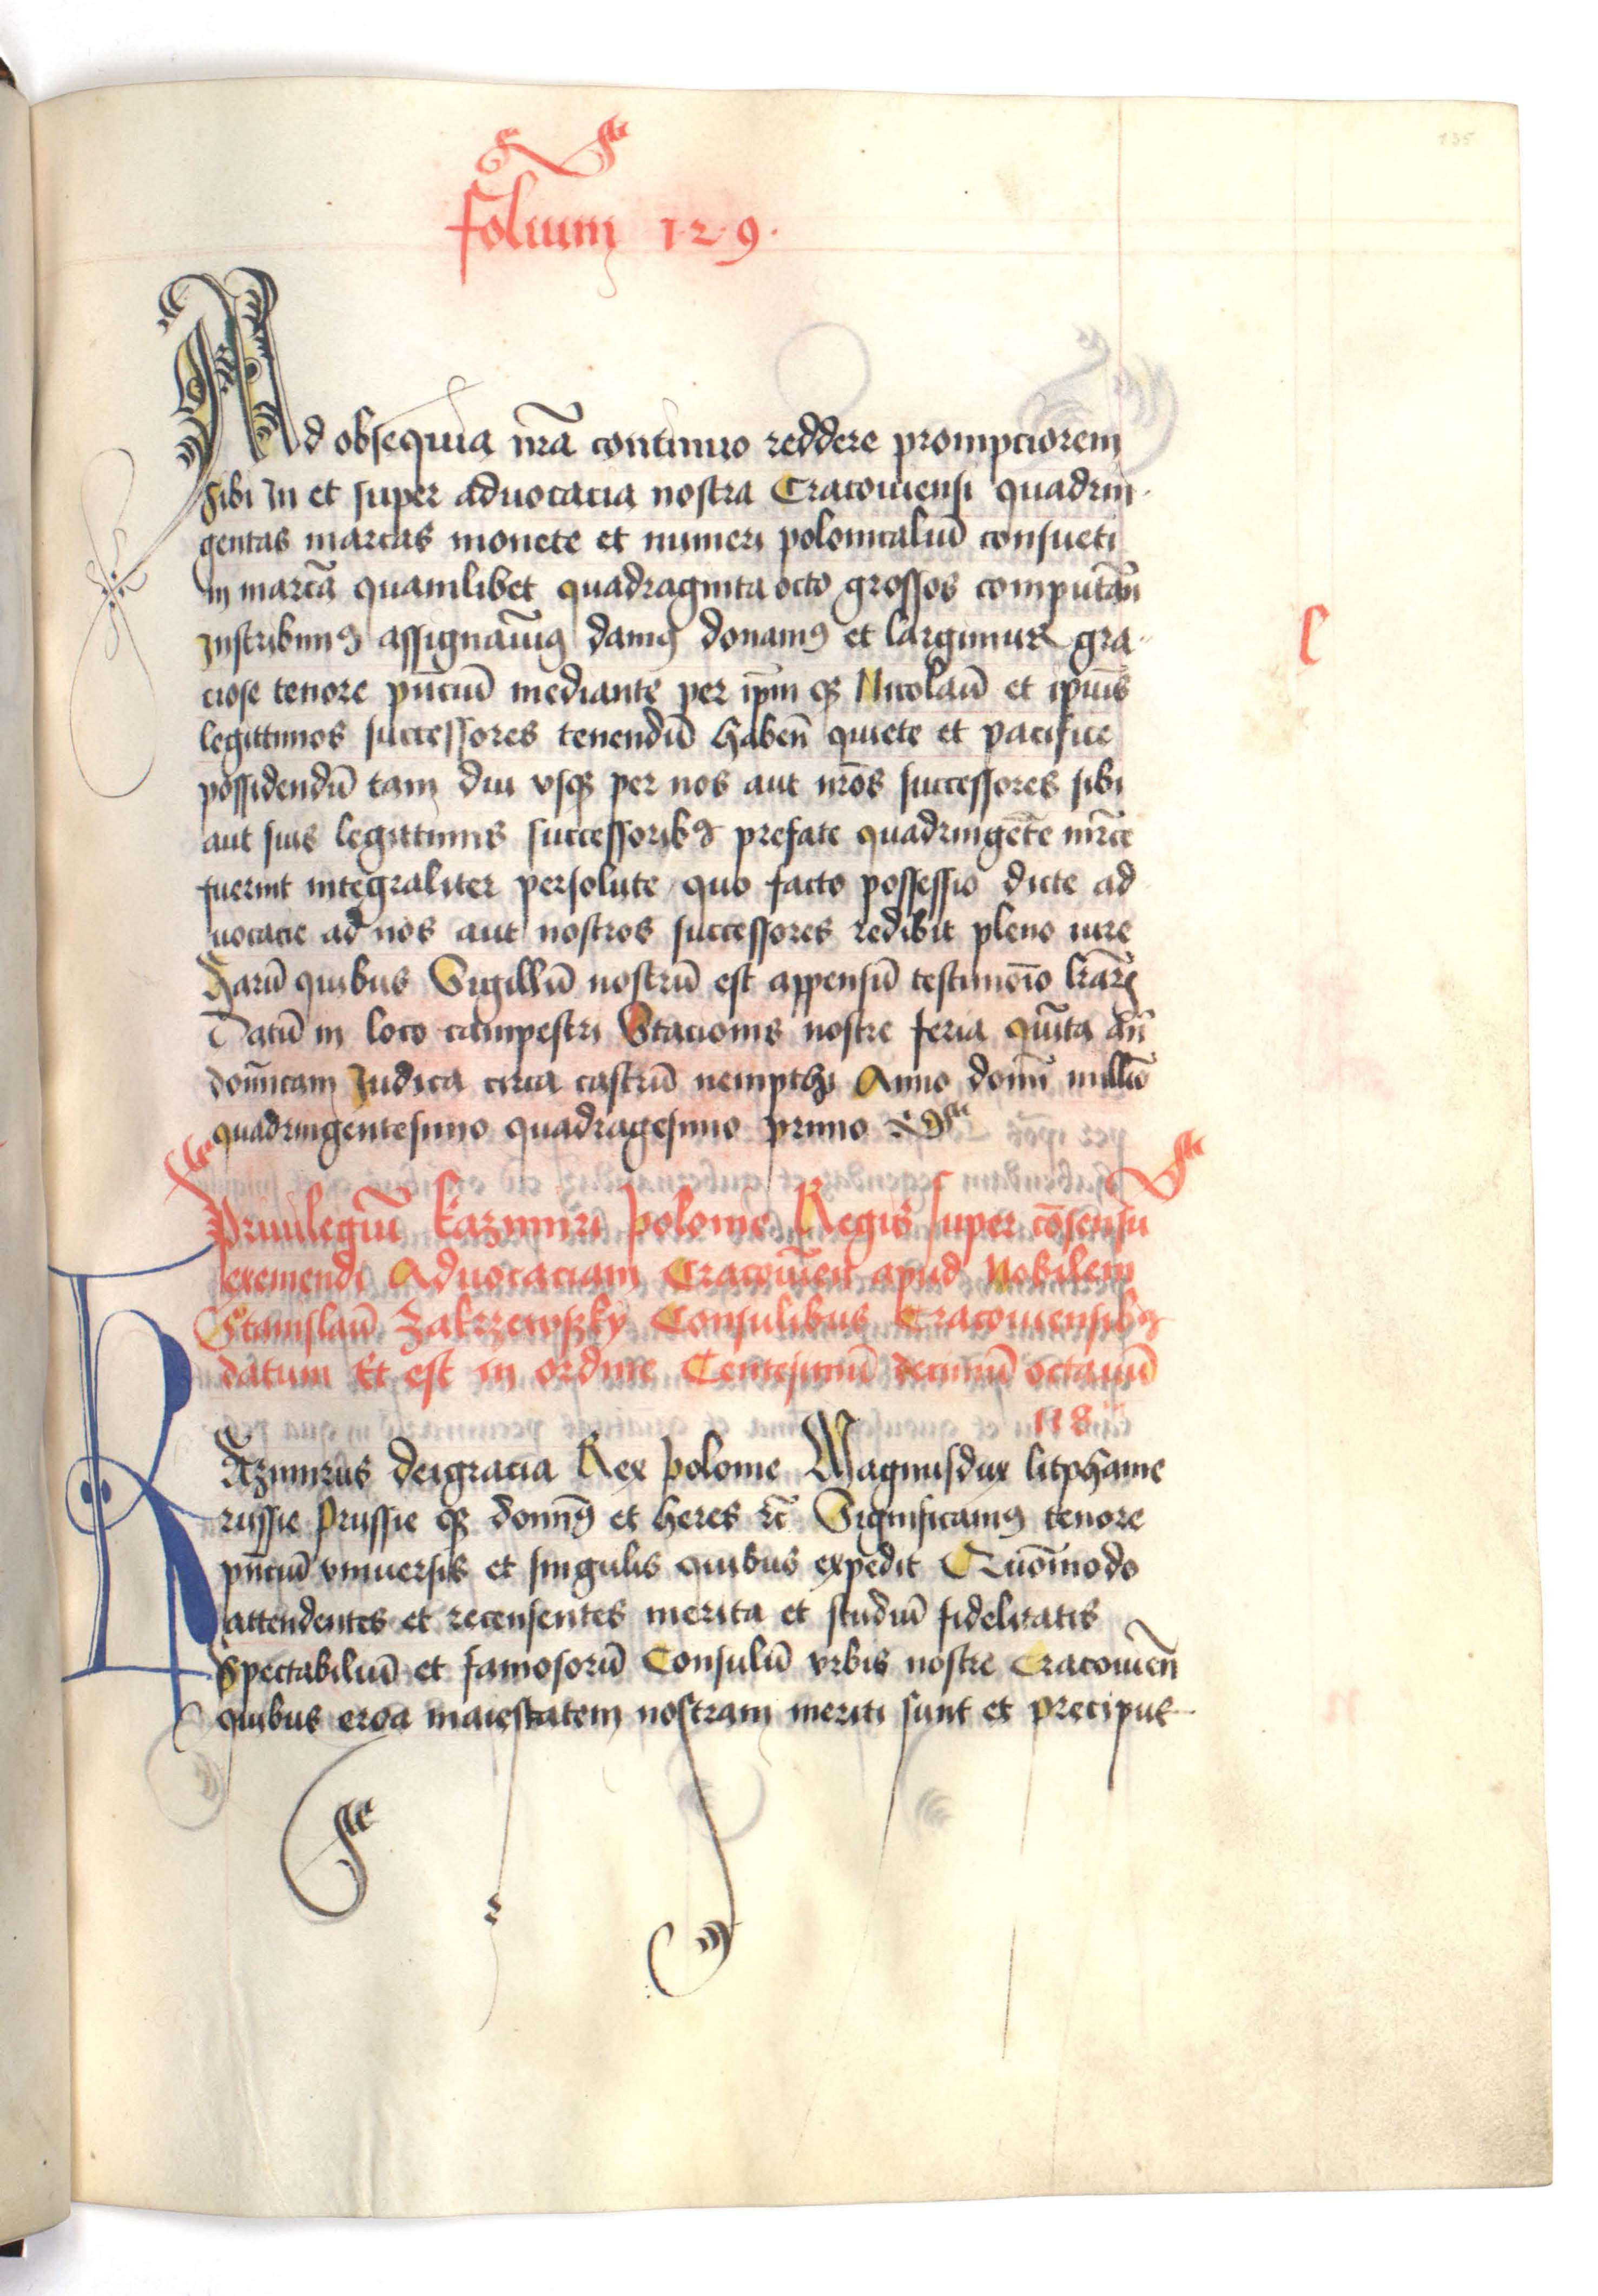 135
folium 1·2·9·
Ad obsequia nr̄a continuo reddere prompciorem
sibi In et super aduocacia nostra Cracouiensi quadrin
gentas marcas monete et numeri polonicaliū consueti
in marcā quamlibet quadraginta octo grossos computān
Inscribimꝰ assignamꝰ damꝰ donamꝰ et largimur gra
ciose tenore pn̄ciū mediante per ip̄m qꝫ Nicolaū et ipiꝰ
legittimos successores tenendū habēn quiete et pacifice
possidendū tam diu vsqꝫ per nos aut nr̄os successores sibi
aut suis legittimis successoribꝰ prefate quadringēte mr̄ce
fuerint integraliter persolute quo facto possessio dicte ad
uocacie ad nos aut nostros successores redibit pleno iure
Harū quibus Sigillū nostrū est appensū testimoīo lr̄arꝫ
Datū in loco campestri Stacionis nostre feria quīta an̄
domīcam Iudica circa castrū nempthi Anno domī millīo
quadringentesimo quadragesimo primo
l
Priuilegiū Kazimiri polonie Regis super cōsensu
exemendi Aduocaciam Cracouīen apud Nobilem
Stanislaū Zakrzewsky Consulibus Cracouiensibꝰ
datum Et est in ordine Centesimū decimū octauū
118
KAzimirus deigracia Rex polonie Magnusdux litphanie
russie prussie qꝫ domīꝰ et heres ꝛc̄ Significamꝰ tenore
pn̄ciū vniuersis et singulis quibus expedit Quōmodo
attendentes et recensentes merita et studiū fidelitatis
Spectabiliū et famosorū Consulū vrbis nostre Cracouiēn
quibus erga maiestatem nostram meriti sunt et precipue